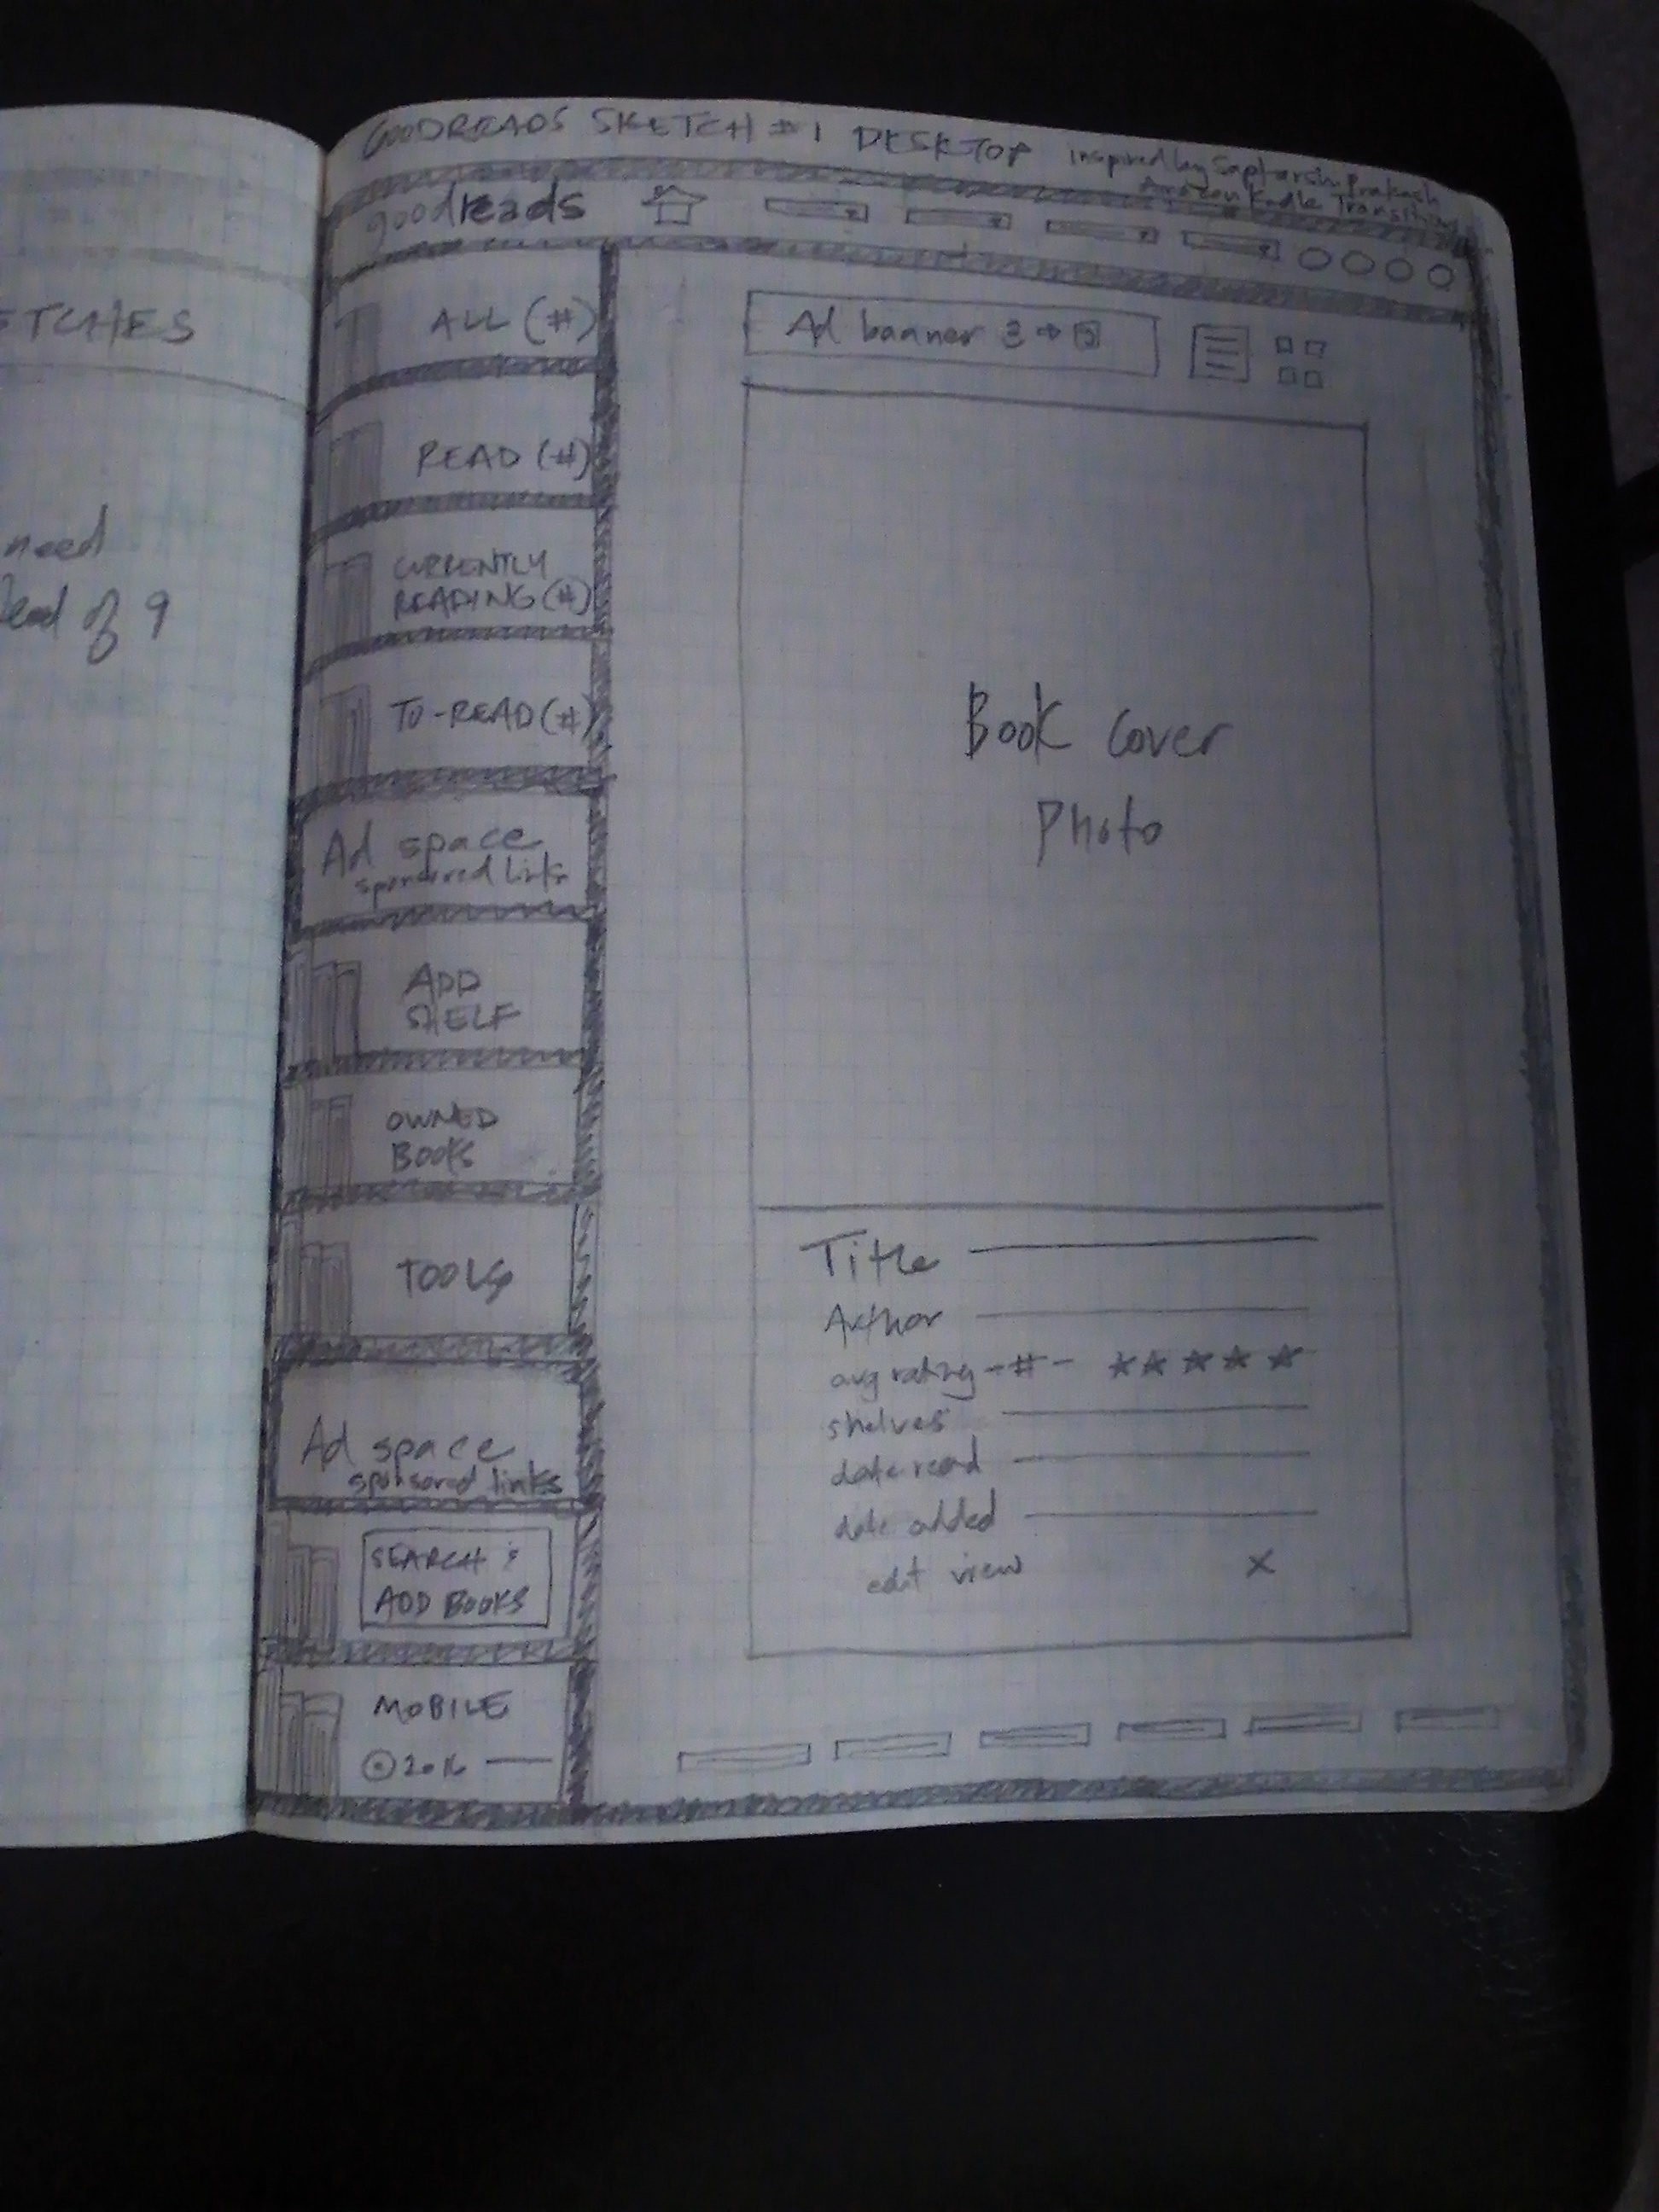 ETCHES
need
of 9
GOODREADS SKETCH #1 DESKTOP
inspired by Saptarshi Prakash
Amazon Kindle Transitions
goodreads
ALL (#)
READ (#)
CURRENTLY
READING (#)
TO-READ (#)
Ad space
sponsored links
ADD
SHELF
OWNED
BOOKS
TOOLS
Ad space
sponsored links
SEARCH &
ADD BOOKS
MOBILE
© 2016
Ad banner
Book Cover
Photo
Title
Author
avg rating - # -
shelves
date read
date added
edit view X